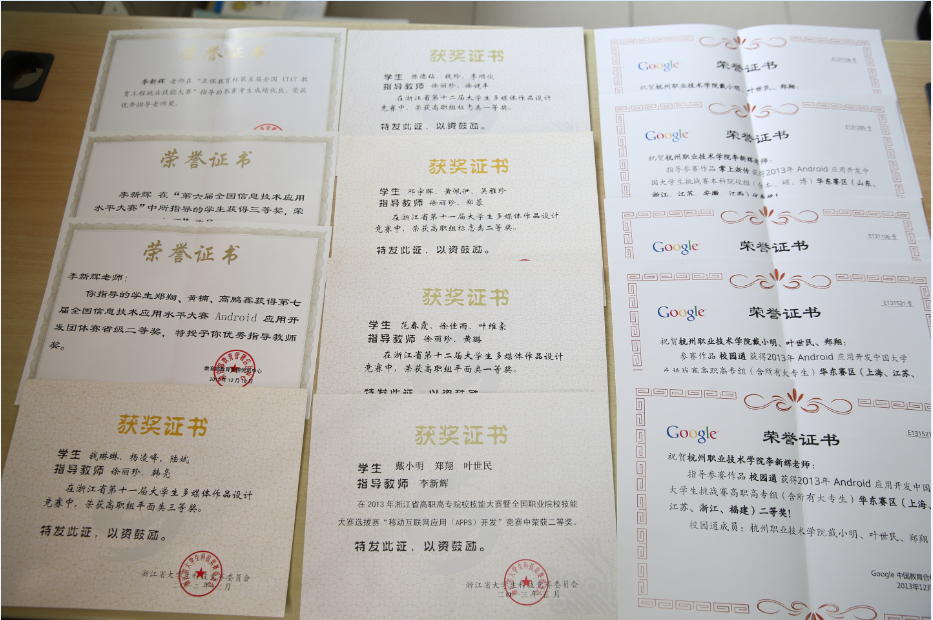 荣誉证书
李新辉 老师在“正保教育杯第五届全国 ITAT 教
育工程就业技能大赛”指导的参赛学生成绩优良,荣获
优秀指导老师奖。
荣誉证书
李新辉 在“第六届全国信息技术应用
水平大赛”中所指导的学生获得三等奖,荣
荣誉证书
李新辉老师:
你指导的学生郑翔、黄楠、高鹏鑫获得第七
届全国信息技术应用水平大赛 Android 应用开
发团体赛省级二等奖,特授予你优秀指导教师
奖。
获奖证书
学生 钱琳琳、杨凌峰、陆斌
指导教师 徐丽珍、韩亮
在浙江省第十一届大学生多媒体作品设计
竞赛中,荣获高职组平面类三等奖。
特发此证,以资鼓励。
浙江省大学生科技竞赛委员会
获奖证书
学生 陈德钻、钱玲、李顺欣
指导教师 徐丽珍、徐键丰
在浙江省第十二届大学生多媒体作品设计
竞赛中,荣获高职组标志类一等奖。
特发此证,以资鼓励。
获奖证书
学生 邓宇辉、黄佩伊、吴雅珍
指导教师 徐丽珍、郑蓉
在浙江省第十一届大学生多媒体作品设计
竞赛中,荣获高职组标志类二等奖。
特发此证,以资鼓励。
获奖证书
学生 范春霞、徐佳雨、叶维豪
指导教师 徐丽珍、黄璐
在浙江省第十二届大学生多媒体作品设计
竞赛中,荣获高职组平面类一等奖。
特发此证,以资鼓励。
获奖证书
学生 戴小明 郑翔 叶世民
指导教师 李新辉
在 2013 年浙江省高职高专院校技能大赛暨全国职业院校技能
大赛选拔赛“移动互联网应用(APPS)开发”竞赛中荣获二等奖。
特发此证,以资鼓励。
浙江省大学生科技竞赛委员会
Google 荣誉证书
祝贺杭州职业技术学院戴小明、叶世民、郑翔:
Google 荣誉证书
祝贺杭州职业技术学院李新辉老师:
指导参赛作品 掌上浙传 获得2013年 Android 应用开发中
国大学生挑战赛本科院校组(含本、硕、博)华东赛区(山东、
Google 荣誉证书
E131106 号
Google 荣誉证书
E131521 号
祝贺杭州职业技术学院戴小明、叶世民、郑翔:
参赛作品 校园通 获得2013年 Android 应用开发中国大学
生挑战赛高职高专组(含所有大专生)华东赛区(上海、江苏、
Google 荣誉证书
E131521
祝贺杭州职业技术学院李新辉老师:
指导参赛作品 校园通 获得2013年 Android 应用开发中国
大学生挑战赛高职高专组(含所有大专生)华东赛区(上海、
江苏、浙江、福建)二等奖!
校园通成员:杭州职业技术学院戴小明、叶世民、郑翔
Google 中国教育合
2013年12月